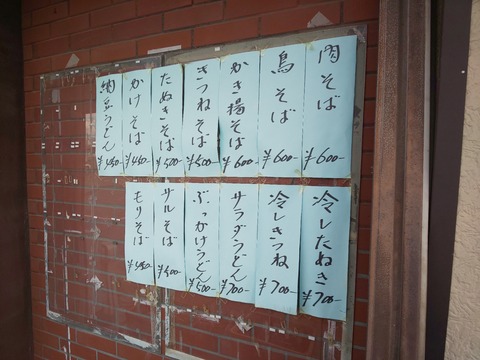 肉そば
¥600-
鳥そば
¥600-
かき揚そば
¥600-
きつねそば
¥500-
たぬきそば
¥500-
かけそば
¥450-
納豆うどん
¥450-
冷したぬき
¥700-
冷しきつね
¥700-
サラダうどん
¥700-
ぶっかけうどん
¥500-
ザルそば
¥500-
モリそば
¥450-